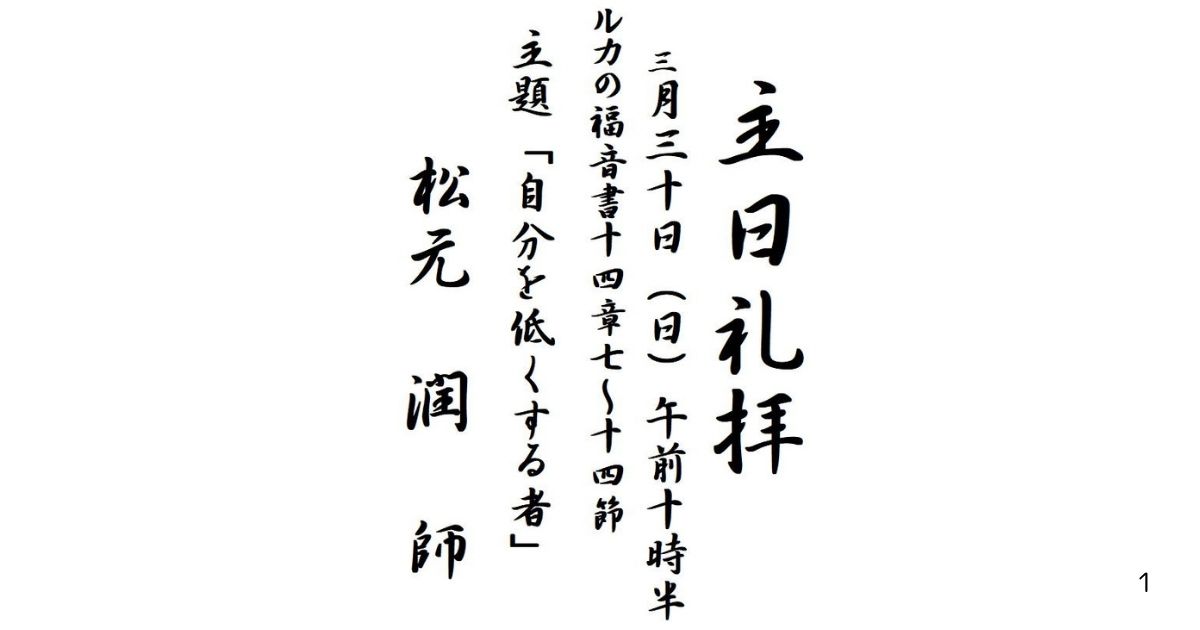 主日礼拝
三月三十日（日）午前十時半
ルカの福音書十四章七～十四節
主題「自分を低くする者」
松元 潤 師
1